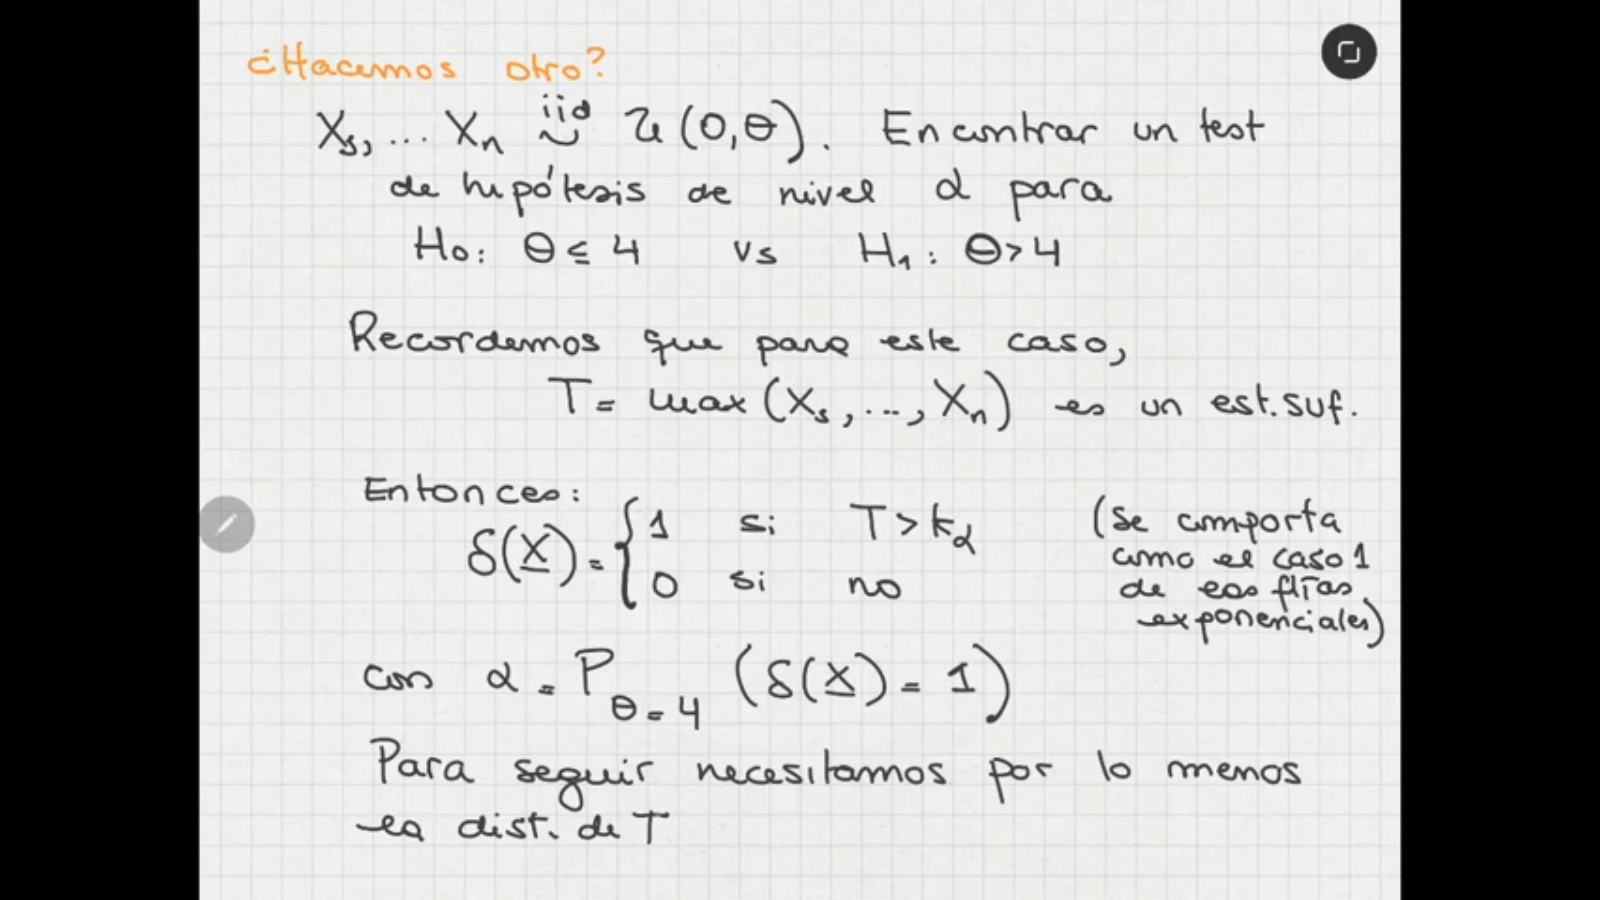 ¿Hacemos otro?
X₁, ... Xₙ iid ~ U(0,θ). Encontrar un test
de hipótesis de nivel α para
H₀: θ ≤ 4 vs H₁: θ > 4
Recordemos que para este caso,
T = max(X₁, ..., Xₙ) es un est. suf.
Entonces:
δ(X) = { 1 si T > kα
0 si no
(se comporta
como el caso 1
de las flias
exponenciales)
con α = P θ=4 (δ(X) = 1)
Para seguir necesitamos por lo menos
la dist. de T